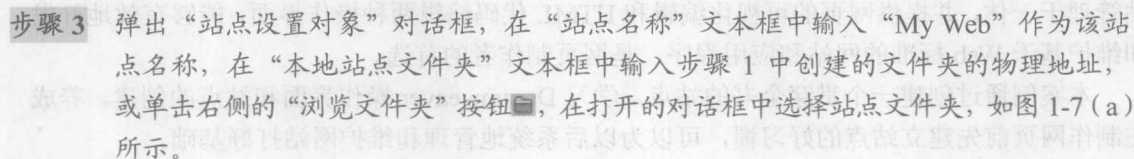 步骤 3 弹出“站点设置对象”对话框，在“站点名称”文本框中输入“My Web”作为该站
点名称，在“本地站点文件夹”文本框中输入步骤 1 中创建的文件夹的物理地址，
或单击右侧的“浏览文件夹”按钮，在打开的对话框中选择站点文件夹，如图 1-7（a）
所示。